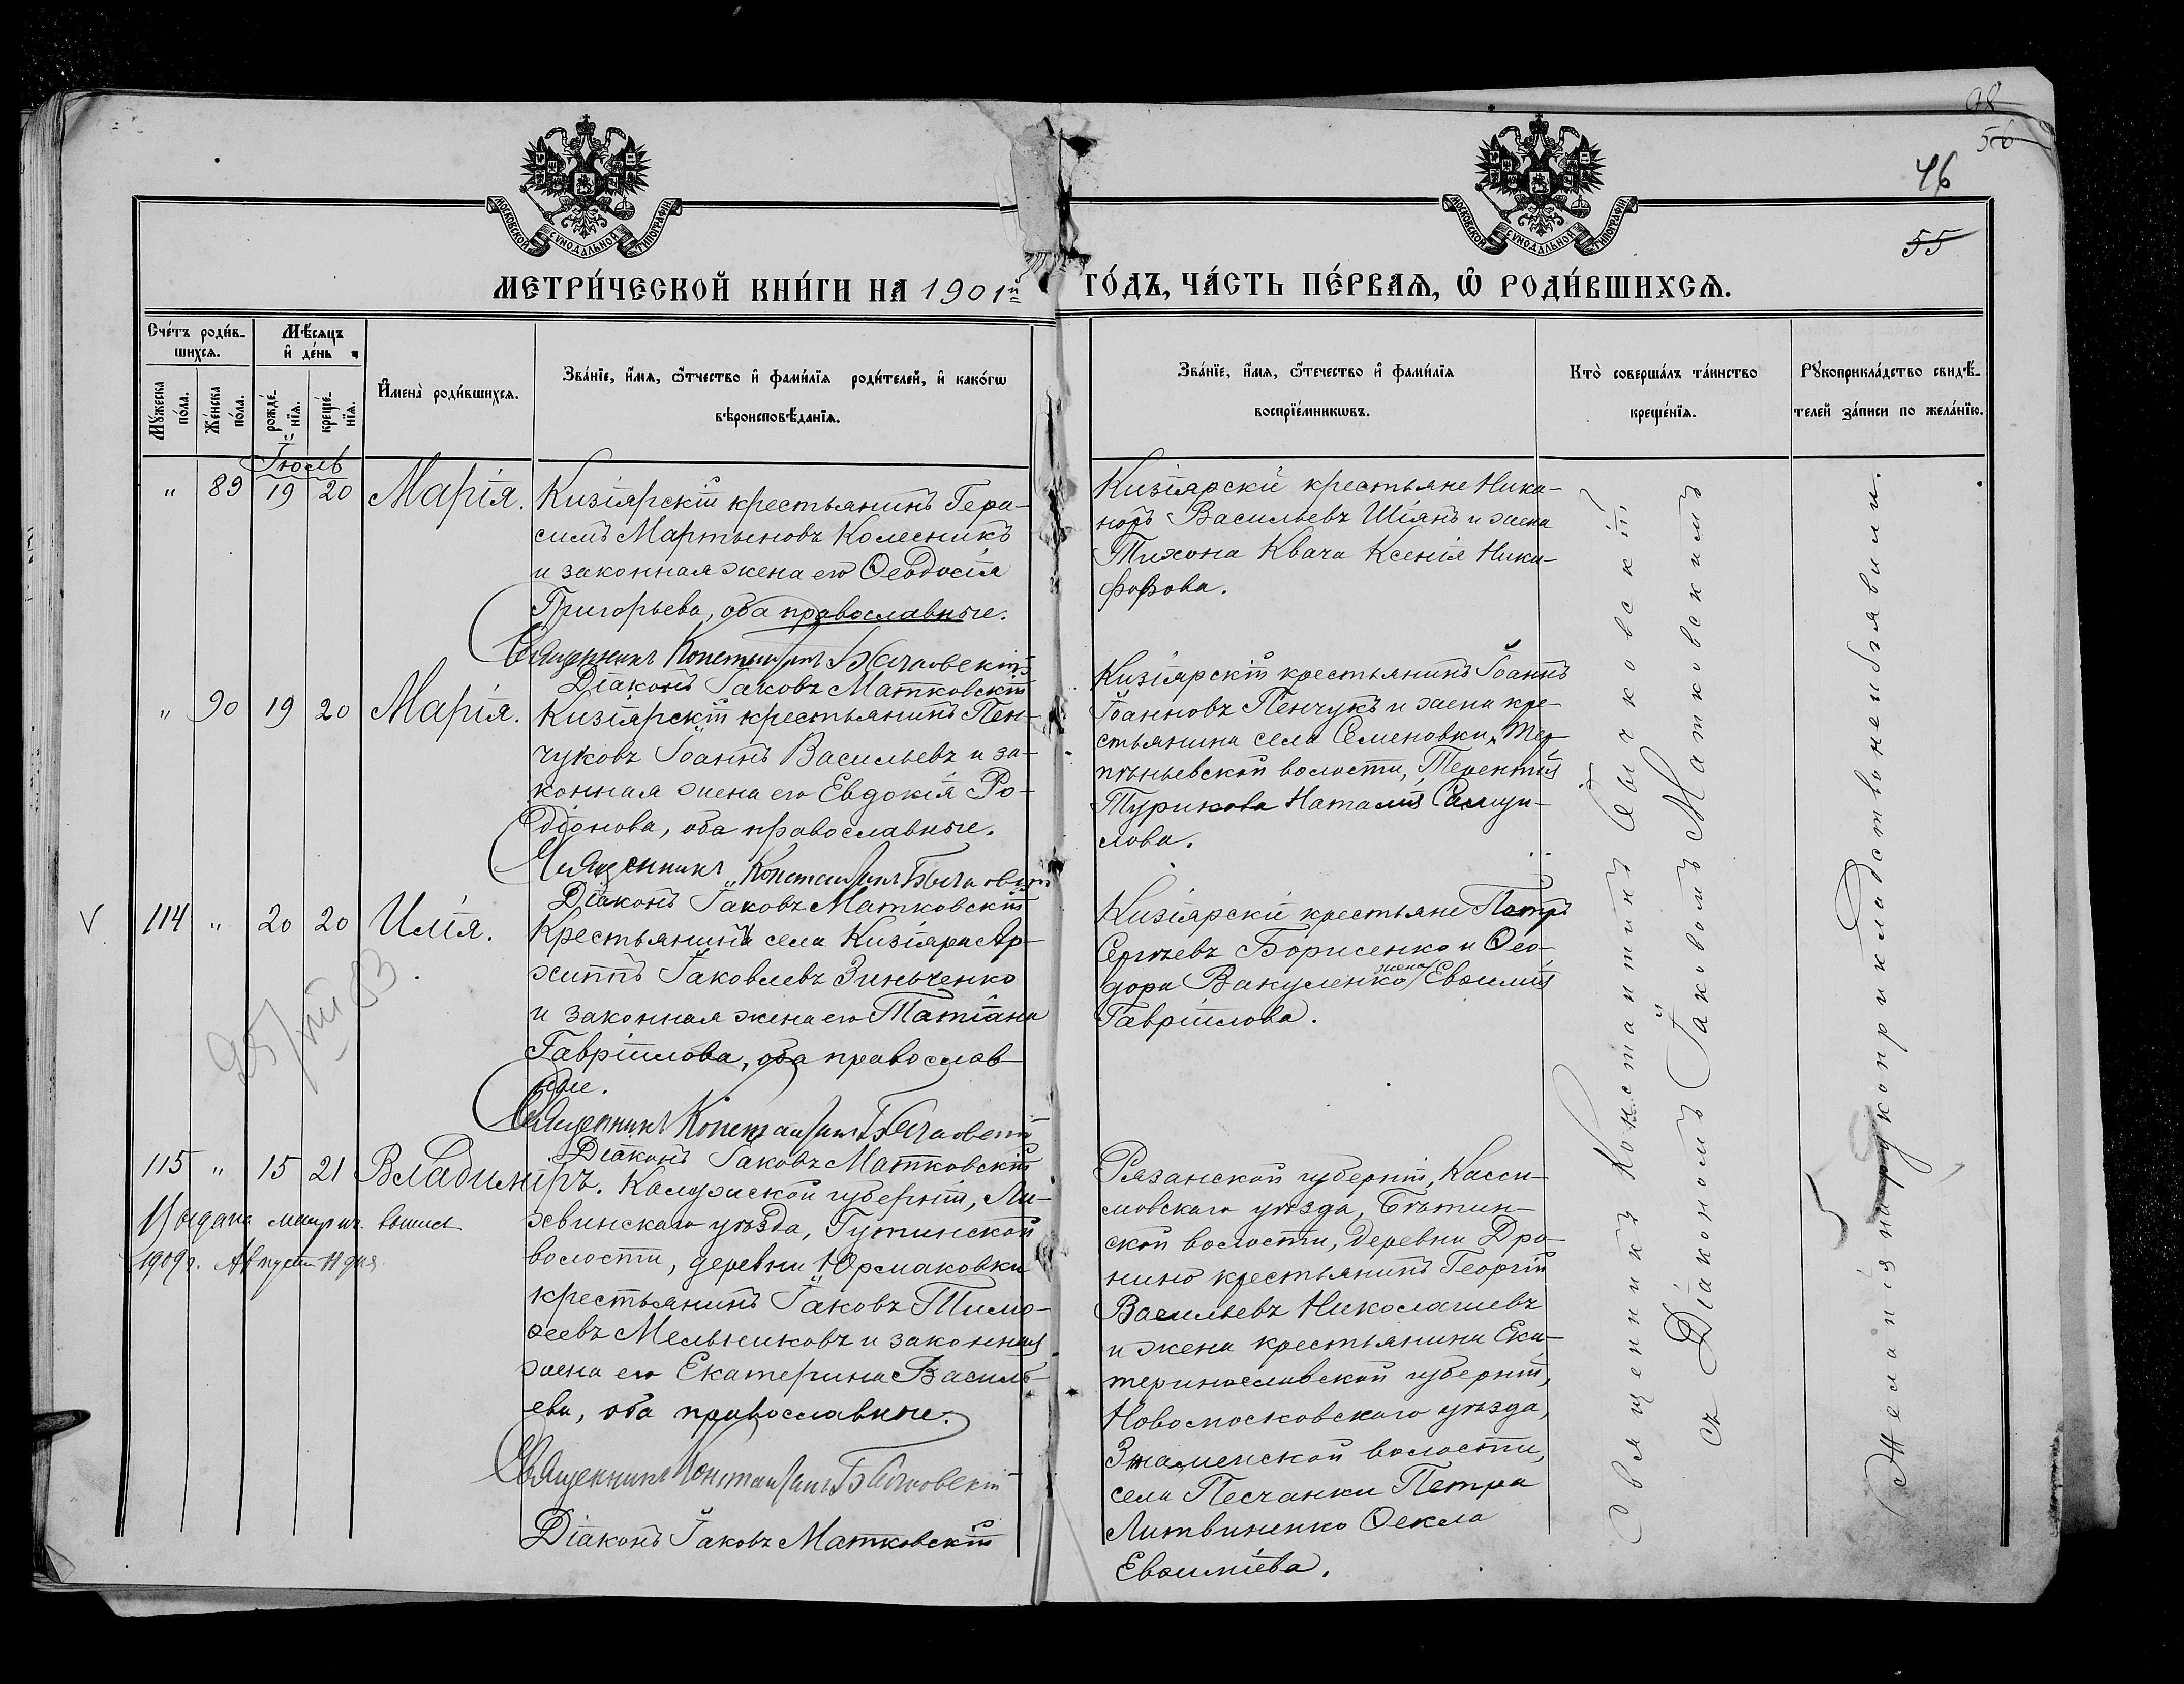 98
56
46
55
МОСКОВСКОЙ СѴНОДАЛЬНОЙ ТИПОГРАФІИ
МОСКОВСКОЙ СѴНОДАЛЬНОЙ ТИПОГРАФІИ
МЕТРИ́ЧЕСКОЙ КНИ́ГИ НА 1901й ГО́ДЪ, ЧА́СТЬ ПЕ́РВАѦ, Ѡ҆ РОДИ́ВШИХСѦ.
Сче́тъ роди́в-
шихсѧ.
Мꙋ́жеска
по́ла.
Же́нска
по́ла.
Мѣ́сѧцъ
и҆ де́нь
рожде́-
нїѧ.
креще́-
нїѧ.
И҆мена̀ роди́вшихсѧ.
Зва́нїе, и҆́мѧ, ѻ҆́тчество и҆ фами́лїѧ роди́телей, и҆ како́гѡ
вѣроисповѣ́данїѧ.
Зва́нїе, и҆́мѧ, ѻ҆́течество и҆ фами́лїѧ
воспрїе́мникѡвъ.
Кто̀ соверша́лъ та́инство
креще́нїѧ.
Рꙋкоприкла́дство свидѣ́-
телей за́писи по жела́нїю.
Іюль
" 89 19 20 Марія.
Кизіярскій крестьянинъ Гера-
симъ Мартыновъ Колесникъ
и законная жена его Ѳеодосія
Григорьева, оба православные.
Священникъ Константинъ Бычковскій
Діаконъ Іаковъ Матковскій
Кизіярскіе крестьяне Ника-
норъ Васильевъ Шіянъ и жена
Тихона Квача Ксенія Ники-
форова.
" 90 19 20 Марія.
Кизіярскій крестьянинъ Пен-
чуковъ Іоаннъ Васильевъ и за-
конная жена его Евдокія Ро-
діонова, оба православные.
Священникъ Константинъ Бычковскій
Діаконъ Іаковъ Матковскій
Кизіярскій крестьянинъ Іоаннъ
Іоанновъ Пенчукъ и жена кре-
стьянина села Семеновки, Тер-
пѣньевской волости, Терентія
Турикова Наталія Самуи-
лова.
V 114 " 20 20 Илія.
Крестьянинъ села Кизіяра Ар-
хиппъ Іаковлевъ Зинченко
и законная жена его Татіана
Гавріилова, оба православ-
ные.
Священникъ Константинъ Бычковскій
Діаконъ Іаковъ Матковскій
Кизіярскіе крестьяне Петръ
Сергѣевъ Борисенко и Ѳео-
дора Вакуленко жена Евѳимія
Гавріилова.
115 " 15 21 Владиміръ.
Выдана метрич. выпись
1909г. Августа 11 дня
Калужской губерніи, Ли-
хвинскаго уѣзда, Гутинской
волости, деревни Юрмаковки
крестьянинъ Іаковъ Тимо-
ѳеевъ Мельниковъ и законная
жена его Екатерина Василь-
ева, оба православные.
Священникъ Константинъ Бычковскій
Діаконъ Іаковъ Матковскій
Рязанской губерніи, Касси-
мовскаго уѣзда, Бѣтин-
ской волости, деревни Дро-
нино крестьянинъ Георгій
Васильевъ Николашевъ
и жена крестьянина Ека-
теринославской губерніи,
Новомосковскаго уѣзда,
Знаменской волости,
села Песчанки Петра
Литвиненко Ѳекла
Евѳиміева.
Священникъ Константинъ Бычковскій
съ Діакономъ Іаковомъ Матковскимъ
Желанія на рукоприкладство не объявили.
5